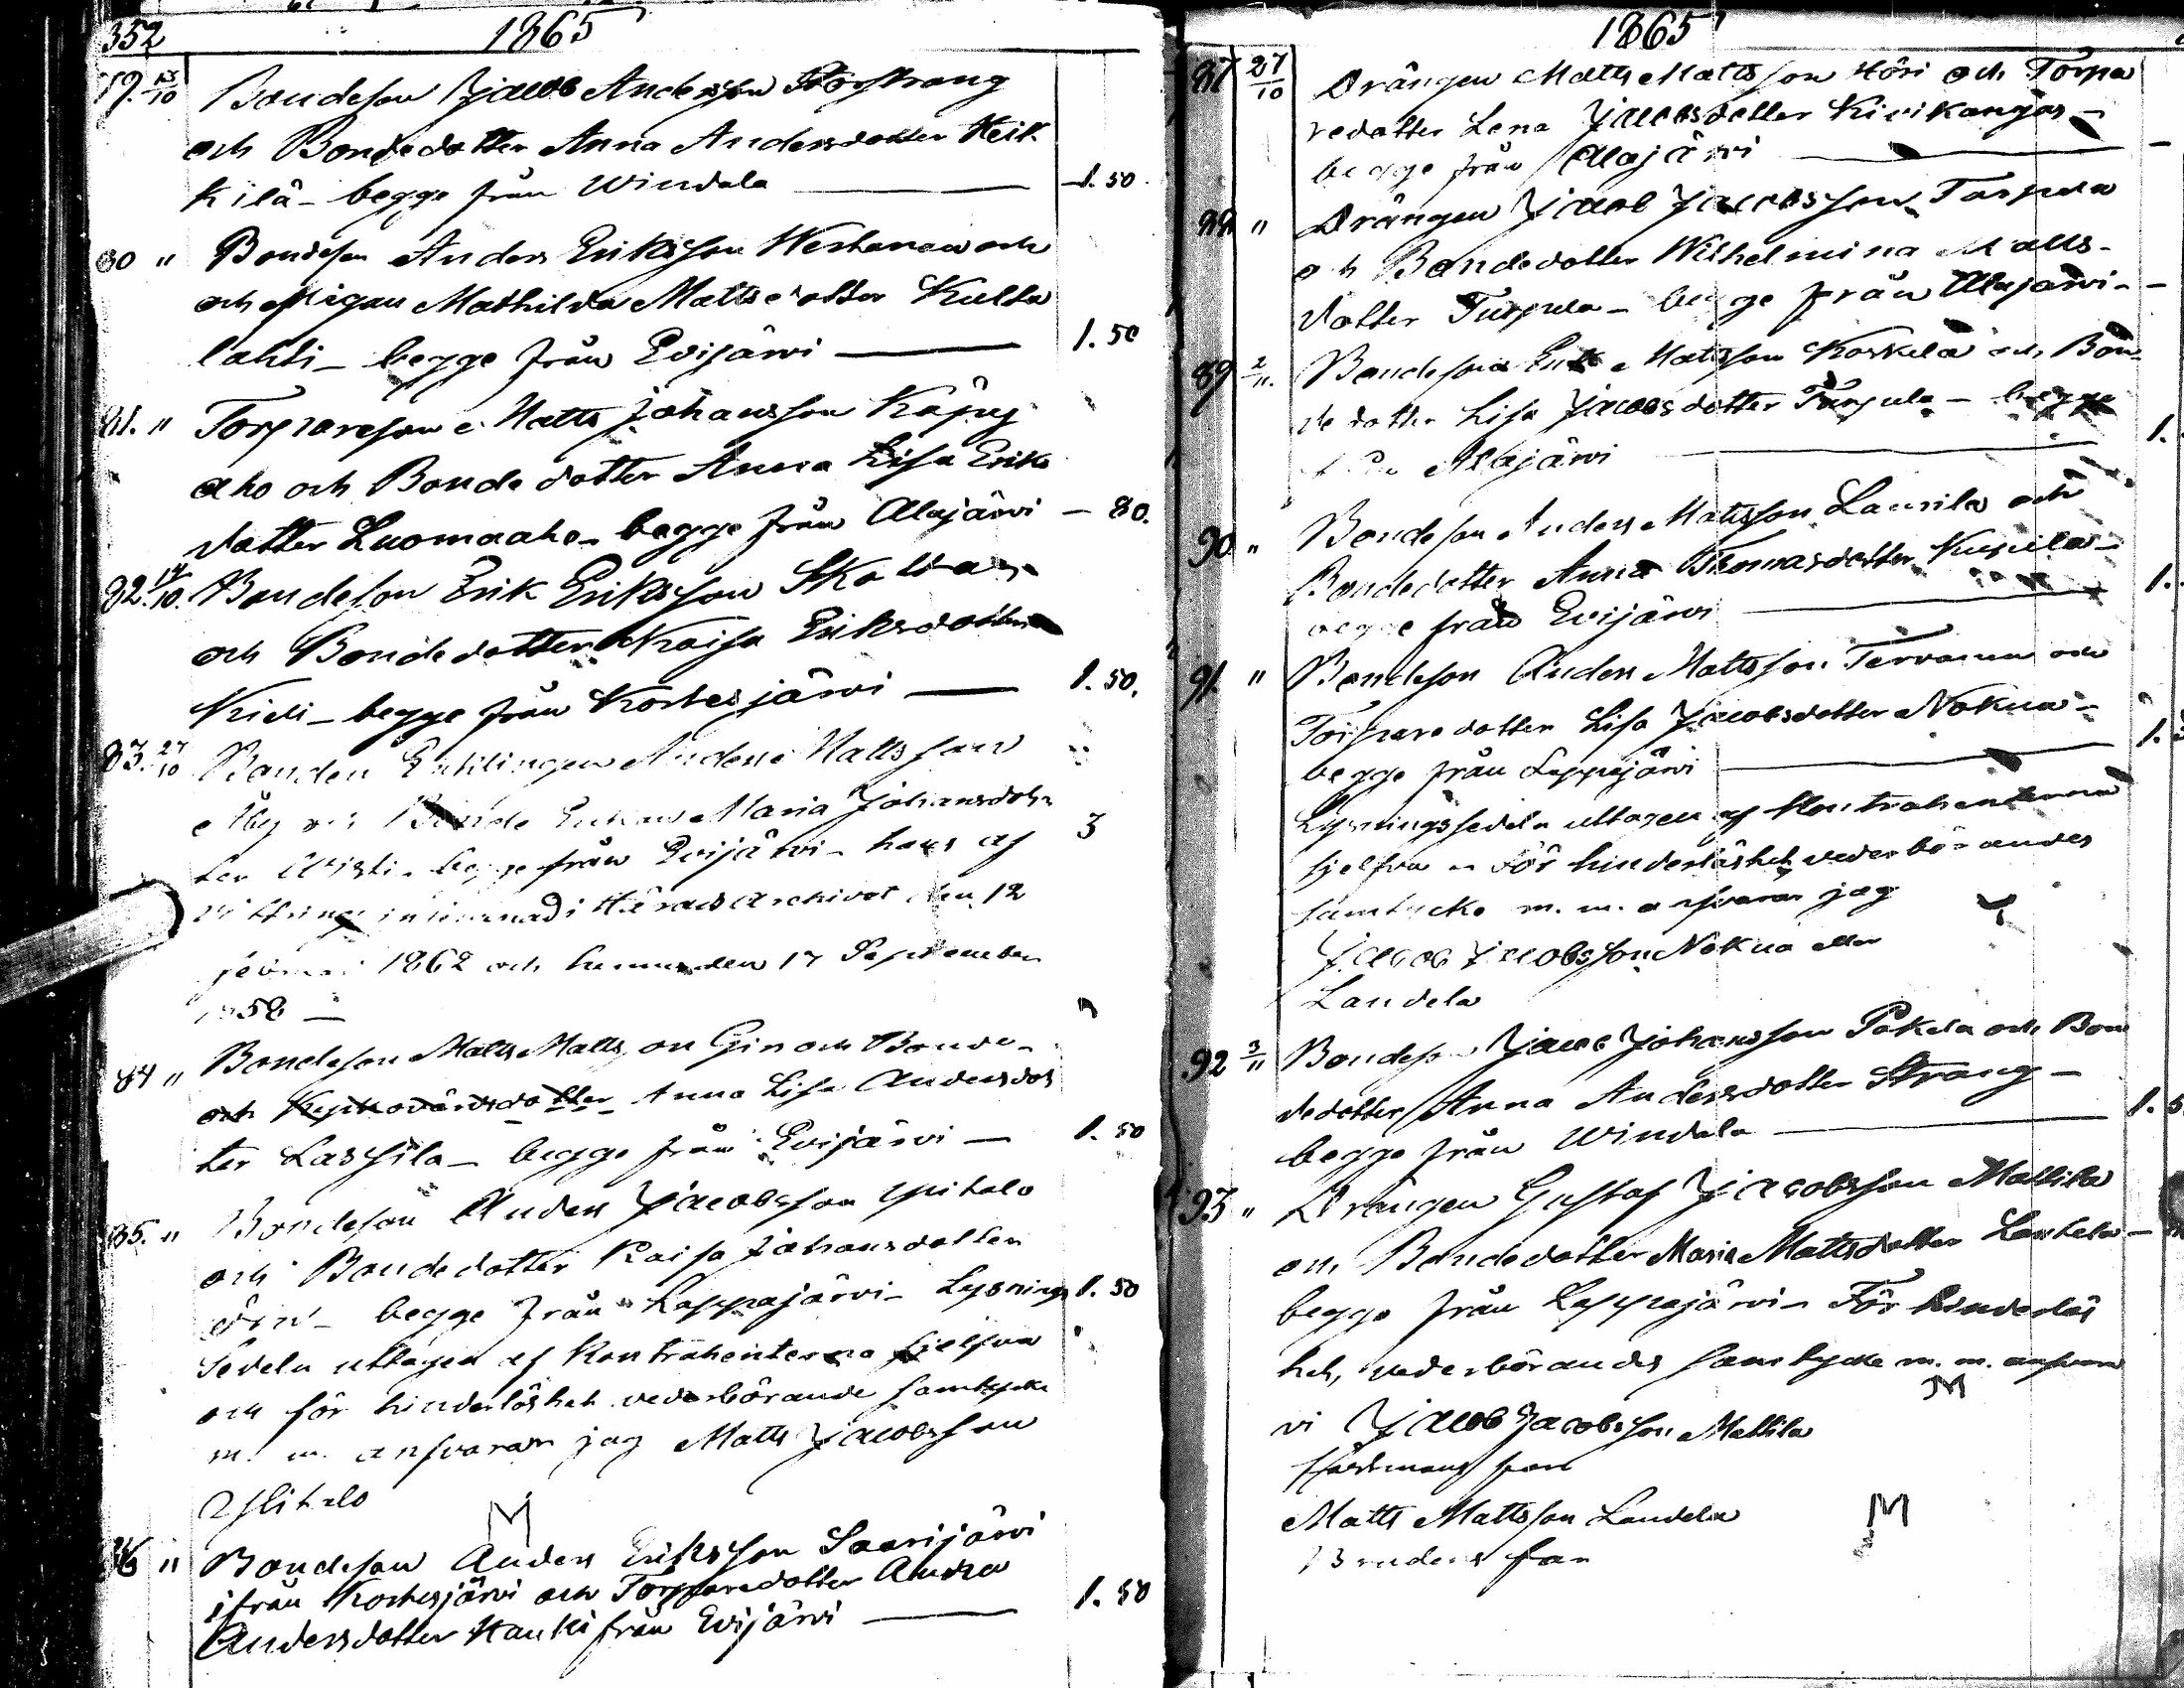 352
1865
79. 13/10 Bondeson Jacob Andersson Storstrang
och Bondedotter Anna Andersdotter Heik
kilä - begge från Windala — 1. 50.
80 " Bondeson Anders Eriksson Westanen och
och Pigan Mathilda Mattsdotter Kulta
lahti - begge från Evijärvi — 1. 50
81. " Torpareson Matts Johansson Käpy
aho och Bondedotter Anna Lisa Eriks
dotter Luomaaho - begge från Alajärvi — 80.
82. 14/10. Bondeson Erik Eriksson
och Bondedotter Kaisa Eriksdotter
Kivi - begge från Kortesjärvi — 1. 50.
83. 27/10 Bonden Enklingen Anders Mattsson
Åby och Bonde Enkan Maria Johansdot
ter - begge från Evijärvi - hans af 3
i Häradsarchivet den 12
1862 och hennes den 17 September
1858 —
84 " Bondeson Matts Mattsson Gin och Bonde-
och Anna Lisa Andersdot
ter Lassila - begge från Evijärvi — 1. 50
85. " Bondeson Anders Jacobsson Ylitalo
och Bondedotter Kaisa Johansdotter
- begge från Lappajärvi - Lysnings 1. 50
Sedeln uttagen af Kontrahenterna sjelfva
och för hinderlöshet vederbörande samtycke
m. m. ansvarar jag Matts Jacobsson
Ylitalo
M
86 " Bondeson Anders Eriksson Saarijärvi
ifrån Kortesjärvi och Torparedotter Andra
Andersdotter Hauki från Evijärvi — 1. 50
1865
87 27/10 Drängen Matts Mattsson Höri och Torpa
redotter Lena Jacobsdotter Kivikangas -
begge från Alajärvi —
88 " Drängen Jacob Jacobsson Turpula
och Bondedotter Wilhelmina Matts-
dotter Turpula - begge från Alajärvi -
89 2/11. Bondeson Erik Mattsson Koskela och Bon-
dedotter Lisa Jacobsdotter Turpula - begge
från Alajärvi — 1.
90 " Bondeson Anders Mattsson Laurila och
Bondedotter Anna Thomasdotter Kuusela -
begge från Evijärvi — 1.
91. " Bondeson Anders Mattsson Tervanen och
Torparedotter Lisa Jacobsdotter Nokua -
begge från Lappajärvi — 1.
Lysningssedeln uttagen af Kontrahenterna
sjelfva - För hinderlöshet, vederbörandes
samtycke m. m. ansvarar jag
Jacob Jacobsson Nokua eller
Landela
92 3/11 Bondeson Jacob Johansson Pokela och Bon
dedotter Anna Andersdotter Strang -
begge från Windala — 1. 5
93 " Drängen Gustaf Jacobsson Mattila
och Bondedotter Maria Mattsdotter Lantela -
begge från Lappajärvi - För hinderlös
het, vederbörandes samtycke m. m. ansvara
vi Jacob Jacobsson Mattila M
Fästmans far
Matts Mattsson Landela M
Brudens far